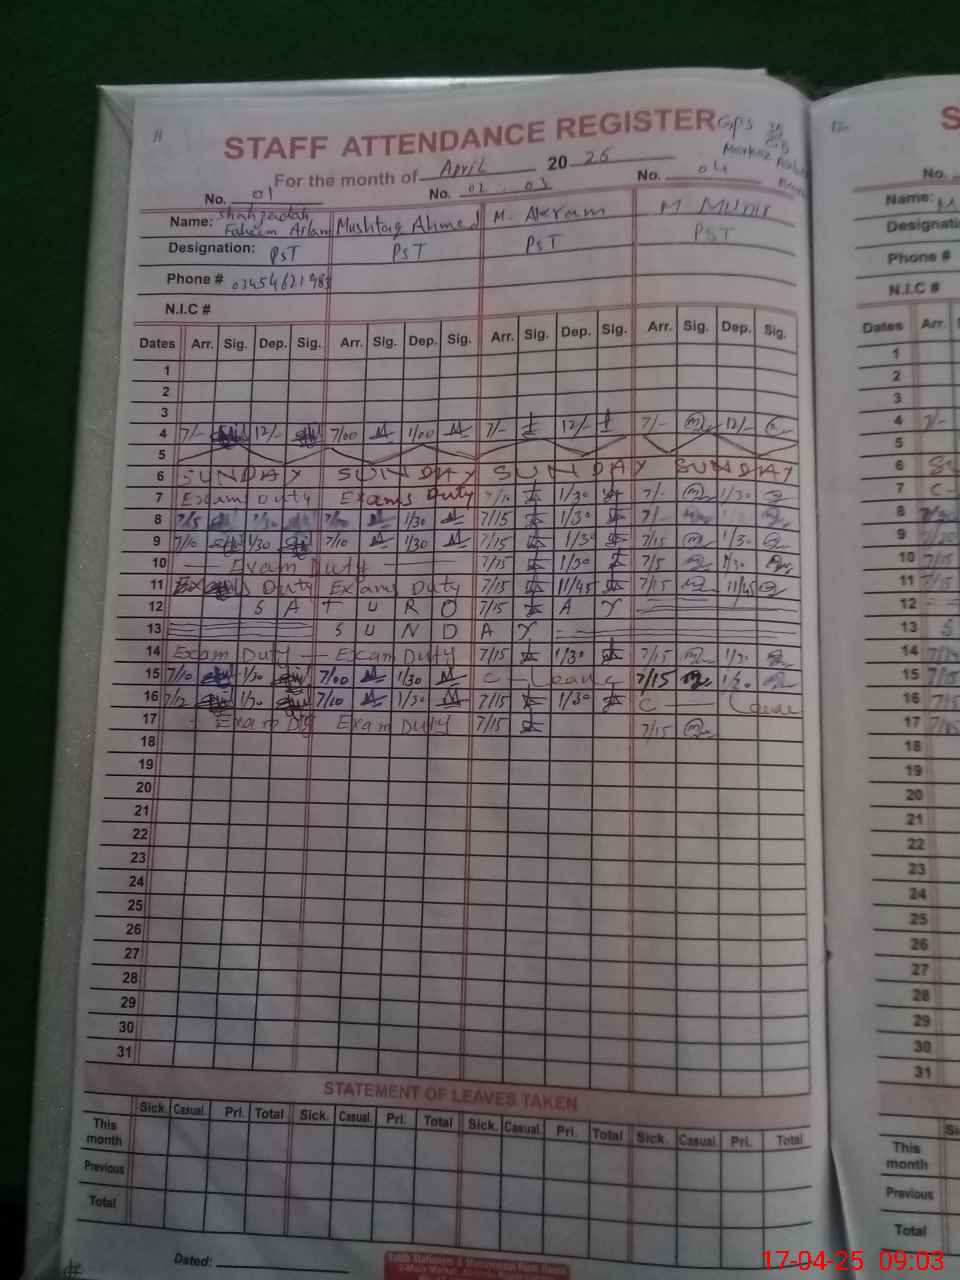 11
STAFF ATTENDANCE REGISTER GPS
Markaz
For the month of April 20 25
No. 01 No. 02 . 03 No. 04
Name: Shahzadah Faheem Aslam Mushtaq Ahmed M. Akram M Munir
Designation: PST PST PST PST
Phone # 03454621983
N.I.C #
Dates Arr. Sig. Dep. Sig. Arr. Sig. Dep. Sig. Arr. Sig. Dep. Sig. Arr. Sig. Dep. Sig.
1
2
3
4 7/- 12/- 7/00 1/00 7/- 12/- 7/- 12/-
5
6 SUNDAY SUNDAY SUNDAY SUNDAY
7 Exam Duty Exams Duty 7/10 1/30 7/- 1/30
8 7/15 1/30 1/30 7/15 1/30 7/-
9 7/10 1/30 7/10 1/30 7/15 1/30 7/15 1/30
10 Exam Duty 7/15 1/30 7/5 1/30
11 Exams Duty Exams Duty 7/15 11/45 7/15 11/45
12 S A T U R D 7/15 A Y
13 S U N D A Y
14 Exam Duty Exam Duty 7/15 1/30 7/15 1/30
15 7/10 1/30 7/00 1/30 C - Leave 7/15 1/30
16 7/12 1/30 7/10 1/30 7/15 1/30 C Leave
17 Exam Duty Exam Duty 7/15 7/15
18
19
20
21
22
23
24
25
26
27
28
29
30
31
STATEMENT OF LEAVES TAKEN
Sick. Casual. Pri. Total Sick. Casual. Pri. Total Sick. Casual. Pri. Total Sick. Casual. Pri. Total
This month
Previous
Total
Dated:
S
No.
Name: M
Designati
Phone #
N.I.C #
Dates Arr.
1
2
3
4 7/-
5
6 Su
7 C-
8
9
10 7/15
11 7/15
12
13 S
14
15 7/15
16 7/15
17 7/15
18
19
20
21
22
23
24
25
26
27
28
29
30
31
Si
This month
Previous
Total
17-04-25 09:03